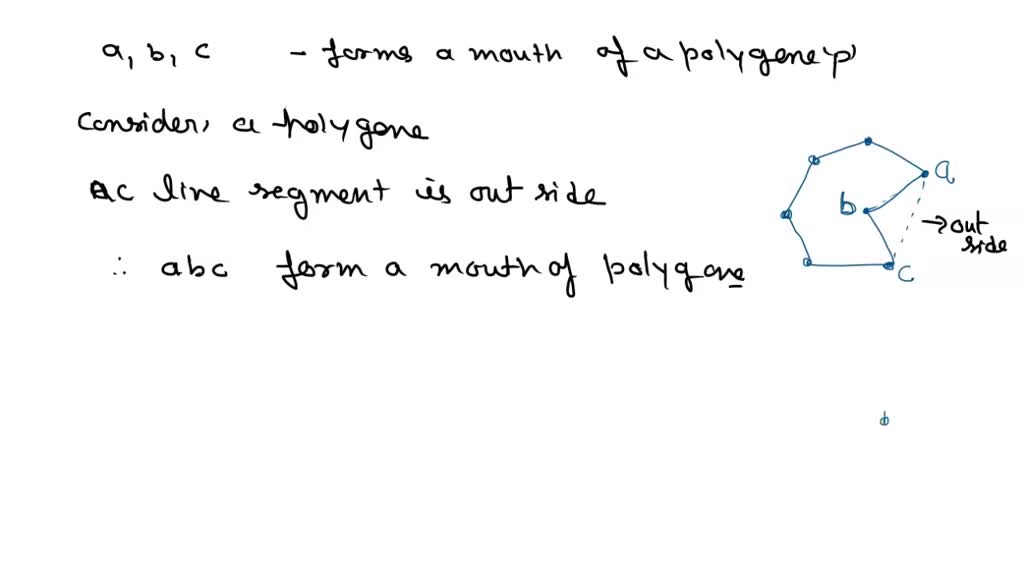 a, b, c - forms a mouth of a polygene 'p'
Consider, a polygone
AC line segment is out side
∴ abc form a mouth of polygone
a
b
→ out
side
c